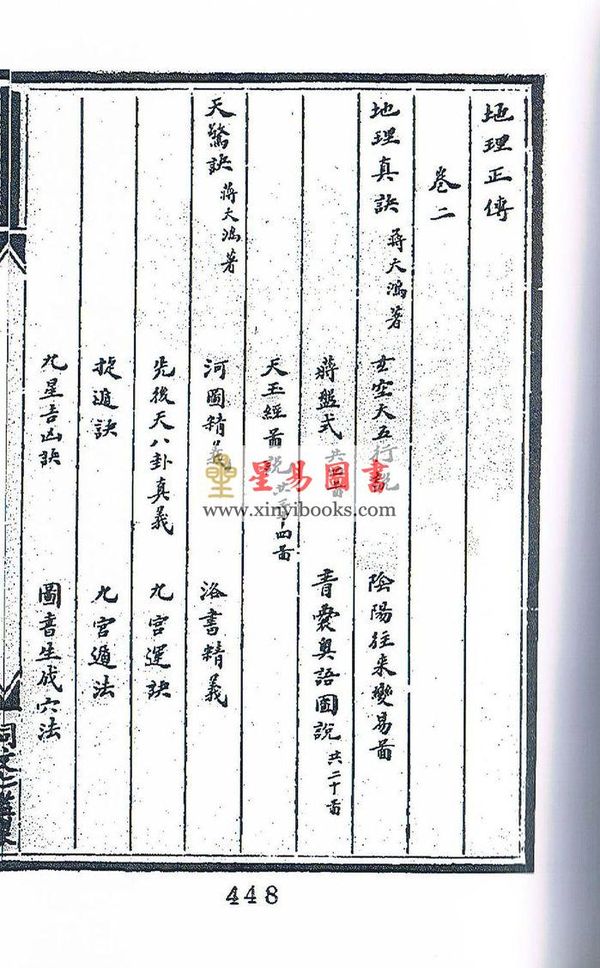 地理正傳
卷二
地理真訣 蔣大鴻著 玄空大五行說 陰陽往來變易啚
蔣盤式 青囊奧語圖說 共二十啚
天玉經啚說 四啚
天驚訣 蔣大鴻著 河圖精義 洛書精義
先後天八卦真義 九宮運訣
挨遁訣 九宮遁法
九星吉凶訣 圖書生成穴法
星易圖書
www.xinyibooks.com
448